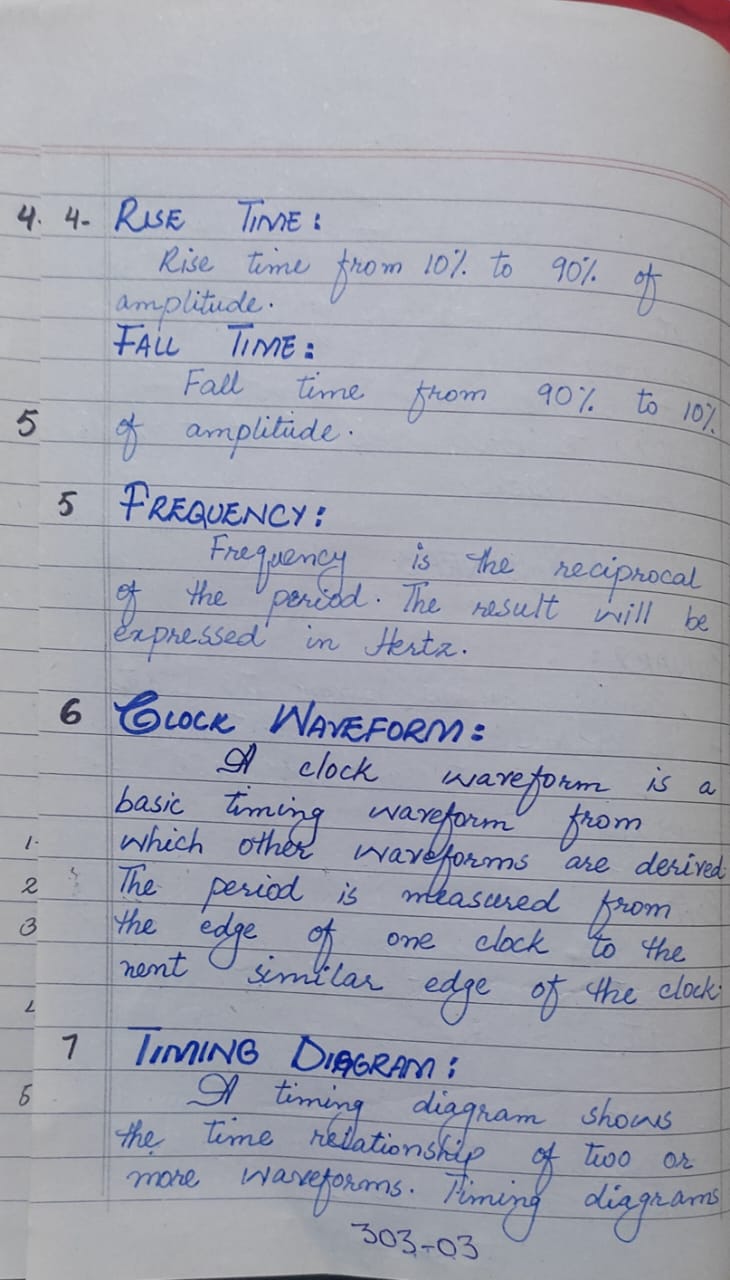 4. 4- RISE TIME:
Rise time from 10% to 90% of
amplitude.
FALL TIME:
Fall time from 90% to 10%
5 of amplitude.
5 FREQUENCY:
Frequency is the reciprocal
of the period. The result will be
expressed in Hertz.
6 CLOCK WAVEFORM:
A clock waveform is a
basic timing waveform from
1. which other waveforms are derived.
2 The period is measured from
3 the edge of one clock to the
nent similar edge of the clock.
7 TIMING DIAGRAM:
5 A timing diagram shows
the time relationship of two or
more waveforms. Timing diagrams
303-03